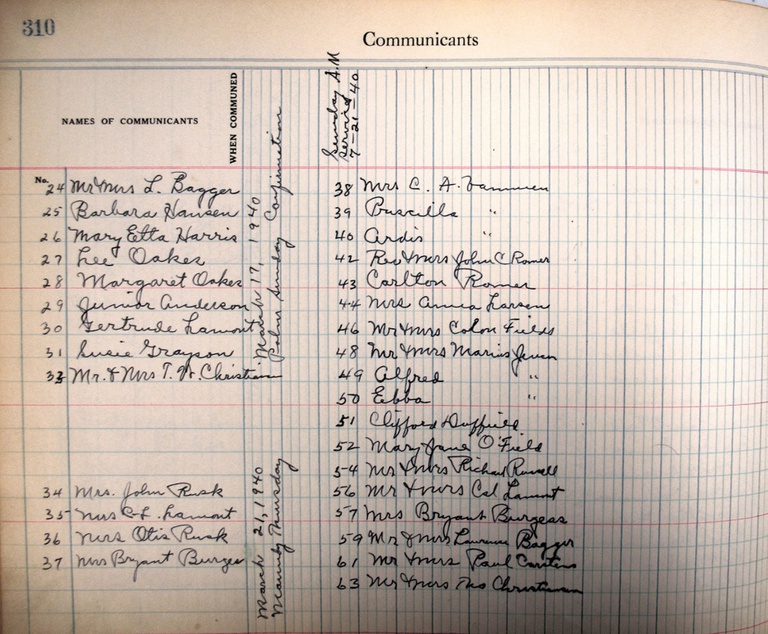 310
Communicants
NAMES OF COMMUNICANTS
WHEN COMMUNED
No.
24 Mr Mrs L. Bagger
25 Barbara Hansen
26 Mary Etta Harris
27 Lee Oakes
28 Margaret Oakes
29 Junior Anderson
30 Gertrude Lamont
31 Susie Grayson
33 Mr. & Mrs T. W. Christiansen
March 17, 1940
Palm Sunday Confirmation
34 Mrs. John Rusk
35 Mrs C. L. Lamont
36 Mrs Otis Rusk
37 Mrs Bryant Burges
March 21, 1940
Maundy Thursday
Sunday A.M
Service
7-21-40
38 Mrs C. A.
39 Priscilla "
40 Ardis "
42 Rev & Mrs John C Romer
43 Carlton Romer
44 Mrs Anna Larsen
46 Mr & Mrs Colon Fields
48 Mr & Mrs Marius Jensen
49 Alfred "
50 Ebba "
51 Clifford Duffield
52 Mary Jane O'Field
54 Mr & Mrs Richard Russell
56 Mr & Mrs Cal Lamont
57 Mrs Bryant Burgess
59 Mr & Mrs Laurence Bagger
61 Mr & Mrs Paul
63 Mr & Mrs Thos Christiansen